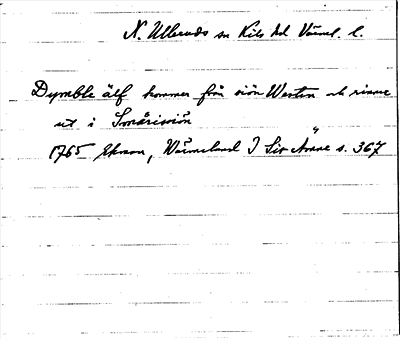 N. Ulleruds sn Kils hd Värml. l.
Dymble älf kommer från siön Westen och rinner
ut i Smårisiön
1765 Ekman, Wärmeland I s. 367